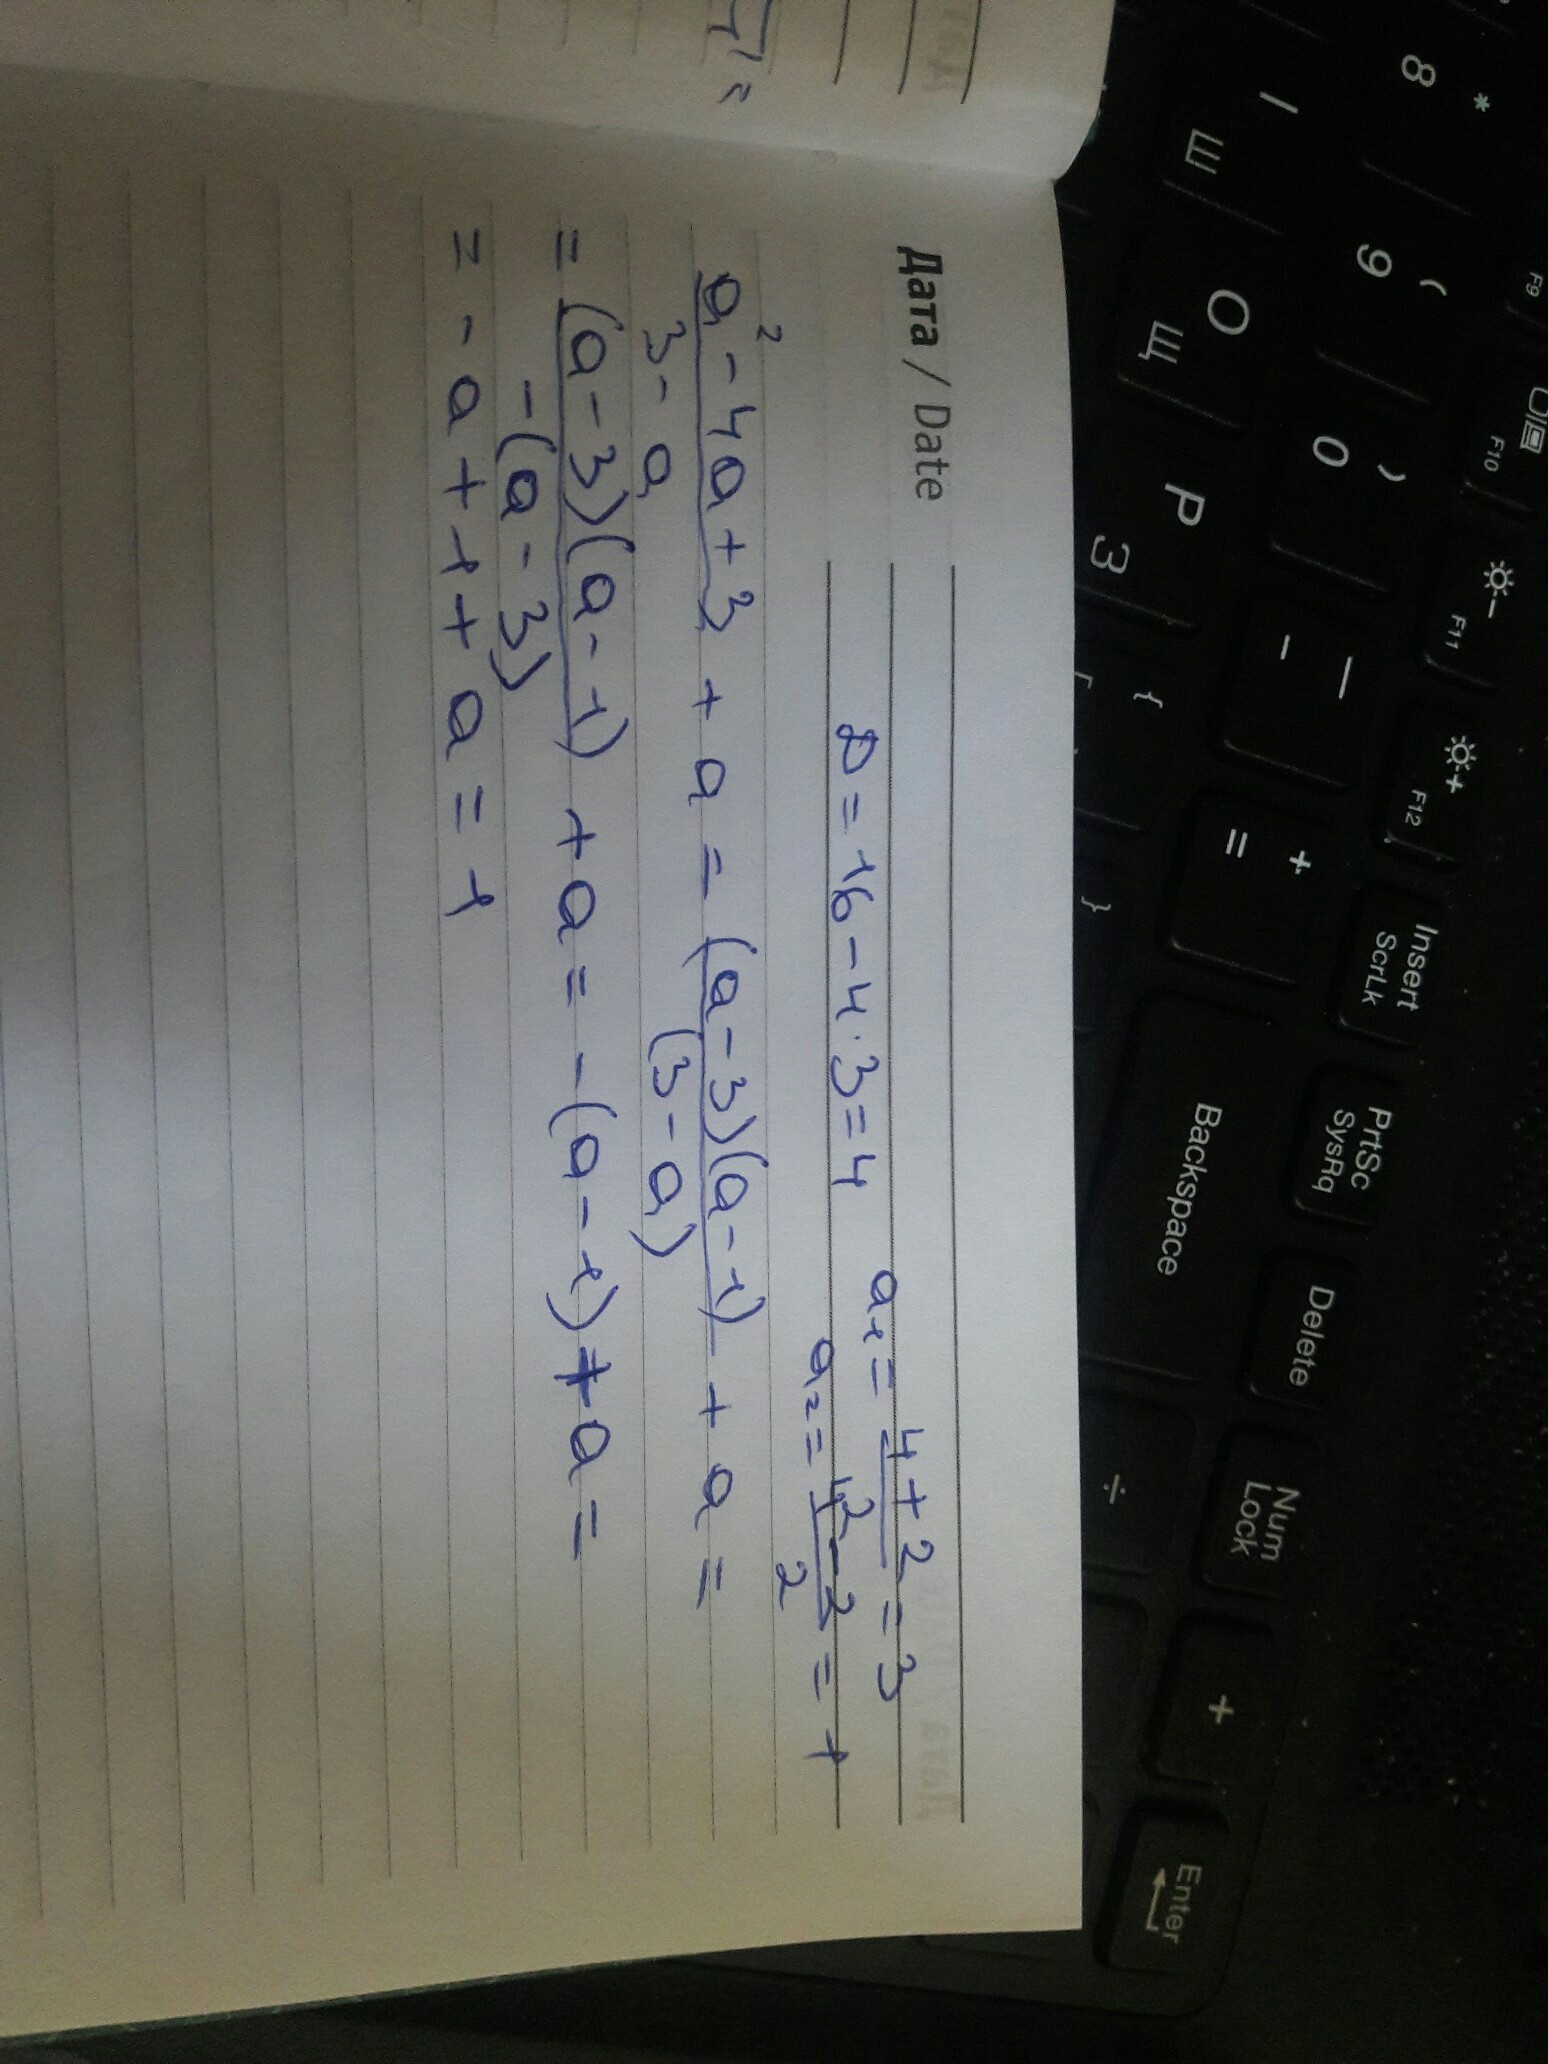 Дата / Date
D = 16 - 4 · 3 = 4
a₁ = 4 + 2 = 3
a₂ = 4 - 2 / 2 = 1
a² - 4a + 3 / 3 - a + a = (a - 3)(a - 1) / (3 - a) + a =
= (a - 3)(a - 1) / -(a - 3) + a = -(a - 1) + a =
= - a + 1 + a = 1
* 8
( 9
) 0
_ -
+ =
Insert ScrLk
PrtSc SysRq
Delete
Num Lock
F9
F10
F11
F12
Backspace
I Ш
O Щ
P З
{ [
}
÷
+
Enter